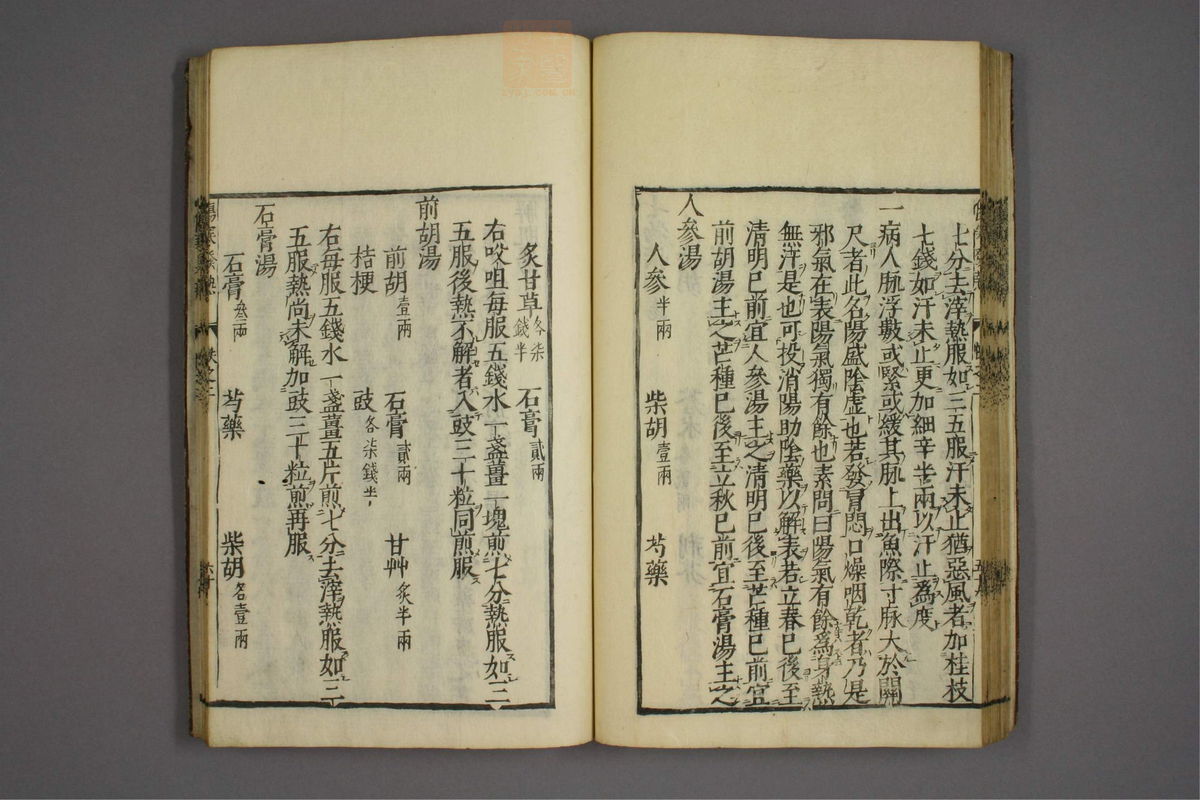 七分去滓熱服如三五服汗未止猶惡風者加桂枝
七錢如汗未止更加細辛半兩以汗止為度
一病人脉浮數或緊或緩其脉上出魚際寸脉大於關
尺者此名陽盛陰虛也若發冒悶口燥咽乾者乃是
邪氣在表陽氣獨有餘也素問曰陽氣有餘爲身熱
無汗是也可投消陽助陰藥以解表若立春已後至
清明已前宜人參湯主之清明已後至芒種已前宜
前胡湯主之芒種已後至立秋已前宜石膏湯主之
人參湯
人參半兩 柴胡壹兩 芍藥
炙甘草各柒錢半 石膏貳兩
右㕮咀每服五錢水一盞薑一塊煎七分熱服如三
五服後熱不解者入豉三十粒同煎服
前胡湯
前胡壹兩 石膏貳兩 甘艸炙半兩
桔梗 豉各柒錢半
右每服五錢水一盞薑五片煎七分去滓熱服如三
五服熱尚未解加豉三十粒煎再服
石膏湯
石膏叁兩 芍藥 柴胡各壹兩